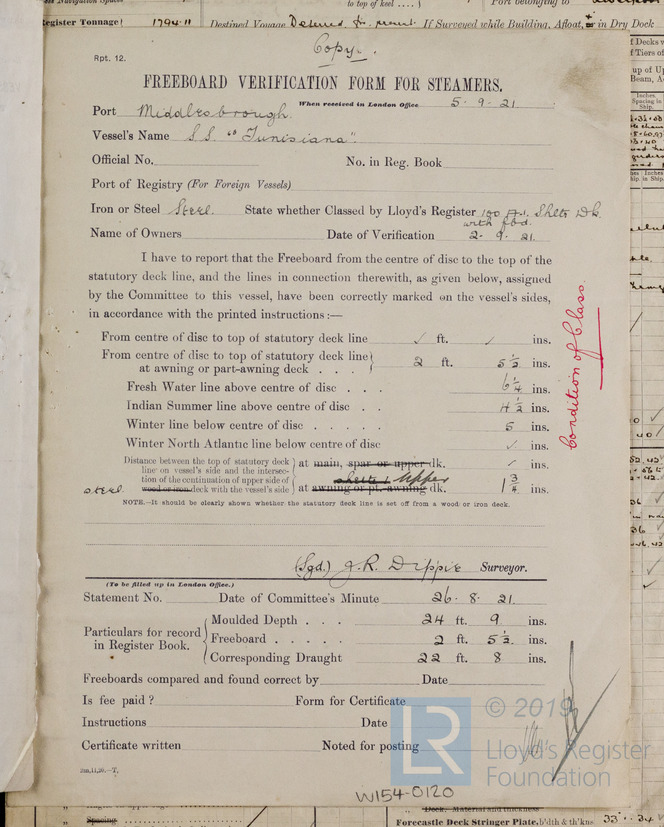 Register Tonnage 1794.11 Destined Voyage If Surveyed while Building, Afloat, or in Dry Dock
to top of keel .... Port belonging to
Copy.
Rpt. 12.
FREEBOARD VERIFICATION FORM FOR STEAMERS.
When received in London Office 5.9.21
Port Middlesbrough.
Vessel's Name S.S. "Tunisiana".
Official No. No. in Reg. Book
Port of Registry (For Foreign Vessels)
Iron or Steel Steel. State whether Classed by Lloyd's Register 100 A1. Shelter Dk.
with fbd.
Name of Owners Date of Verification 2. 9. 21.
I have to report that the Freeboard from the centre of disc to the top of the
statutory deck line, and the lines in connection therewith, as given below, assigned
by the Committee to this vessel, have been correctly marked on the vessel's sides,
in accordance with the printed instructions:—
From centre of disc to top of statutory deck line ✓ ft. ✓ ins.
From centre of disc to top of statutory deck line
at awning or part-awning deck . . . 2 ft. 5½ ins.
Fresh Water line above centre of disc . . . 6¼ ins.
Indian Summer line above centre of disc . . 4½ ins.
Winter line below centre of disc . . . . . 5 ins.
Winter North Atlantic line below centre of disc ✓ ins.
Distance between the top of statutory deck
line on vessel's side and the intersec-
tion of the continuation of upper side of
steel wood or iron deck with the vessel's side
at main, spar or upper dk. ✓ ins.
shelter Upper
at awning or pt. awning dk. 1¾ ins.
NOTE.—It should be clearly shown whether the statutory deck line is set off from a wood or iron deck.
Condition of Class.
(Sgd.) J.R. Dippie Surveyor.
(To be filled up in London Office.)
Statement No. Date of Committee's Minute 26. 8. 21.
Particulars for record
in Register Book.
Moulded Depth . . . 24 ft. 9 ins.
Freeboard . . . . . 2 ft. 5½ ins.
Corresponding Draught 22 ft. 8 ins.
Freeboards compared and found correct by Date
Is fee paid? Form for Certificate
Instructions Date
Certificate written Noted for posting
2m,11,20.—T.
W154-0120
© 2019
LR
Lloyd's Register
Foundation
Spacing
Deck. Material and thickness
Forecastle Deck Stringer Plate, b'dth & th'kns